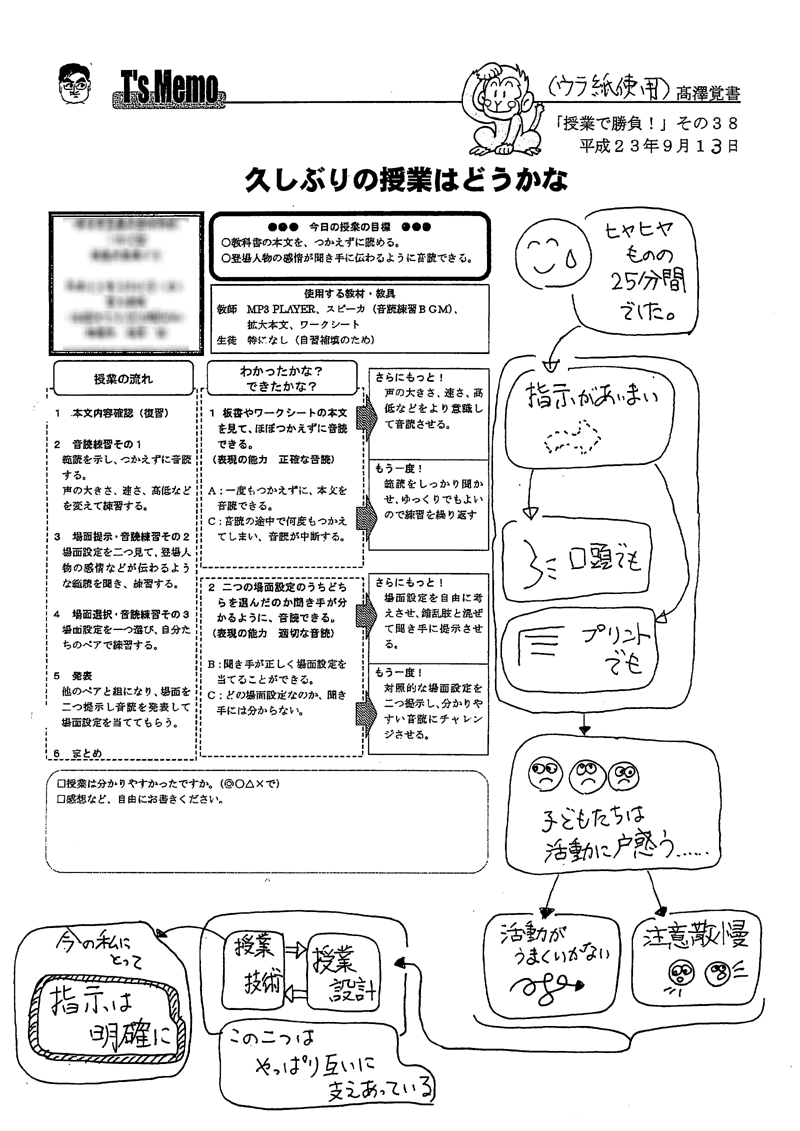 T's Memo
(ウラ紙使用)高澤覚書
「授業で勝負！」その３８
平成２３年９月１３日
久しぶりの授業はどうかな
●●● 今日の授業の目標 ●●●
○教科書の本文を、つかえずに読める。
○登場人物の感情が聞き手に伝わるように音読できる。
使用する教材・教具
教師 MP3 PLAYER、スピーカ（音読練習ＢＧＭ）、
拡大本文、ワークシート
生徒 特になし（自習補填のため）
授業の流れ
1 本文内容確認（復習）
2 音読練習その１
範読を示し、つかえずに音読
する。
声の大きさ、速さ、高低など
を変えて練習する。
3 場面提示・音読練習その２
場面設定を二つ見て、登場人
物の感情などが伝わるよう
な範読を聞き、練習する。
4 場面選択・音読練習その３
場面設定を一つ選び、自分た
ちのペアで練習する。
5 発表
他のペアと組になり、場面を
二つ提示し音読を発表して
場面設定を当ててもらう。
6 まとめ
わかったかな？
できたかな？
1 板書やワークシートの本文
を見て、ほぼつかえずに音読
できる。
（表現の能力 正確な音読）
A：一度もつかえずに、本文を
音読できる。
C：音読の途中で何度もつかえ
てしまい、音読が中断する。
2 二つの場面設定のうちどち
らを選んだのか聞き手が分
かるように、音読できる。
（表現の能力 適切な音読）
B：聞き手が正しく場面設定を
当てることができる。
C：どの場面設定なのか、聞き
手には分からない。
さらにもっと！
声の大きさ、速さ、高
低などをより意識し
て音読させる。
もう一度！
範読をしっかり聞か
せ、ゆっくりでもよい
ので練習を繰り返す
さらにもっと！
場面設定を自由に考
えさせ、錯乱肢と混ぜ
て聞き手に提示させ
る。
もう一度！
対照的な場面設定を
二つ提示し、分かりや
すい音読にチャレン
ジさせる。
□授業は分かりやすかったですか。（◎○△×で）
□感想など、自由にお書きください。
ヒヤヒヤ
ものの
25分間
でした。
指示があいまい
口頭でも
プリント
でも
子どもたちは
活動に戸惑う……
活動が
うまくいかない
注意散慢
授業
技術
授業
設計
この二つは
やっぱり互いに
支えあっている
今の私に
とって
指示は
明確に